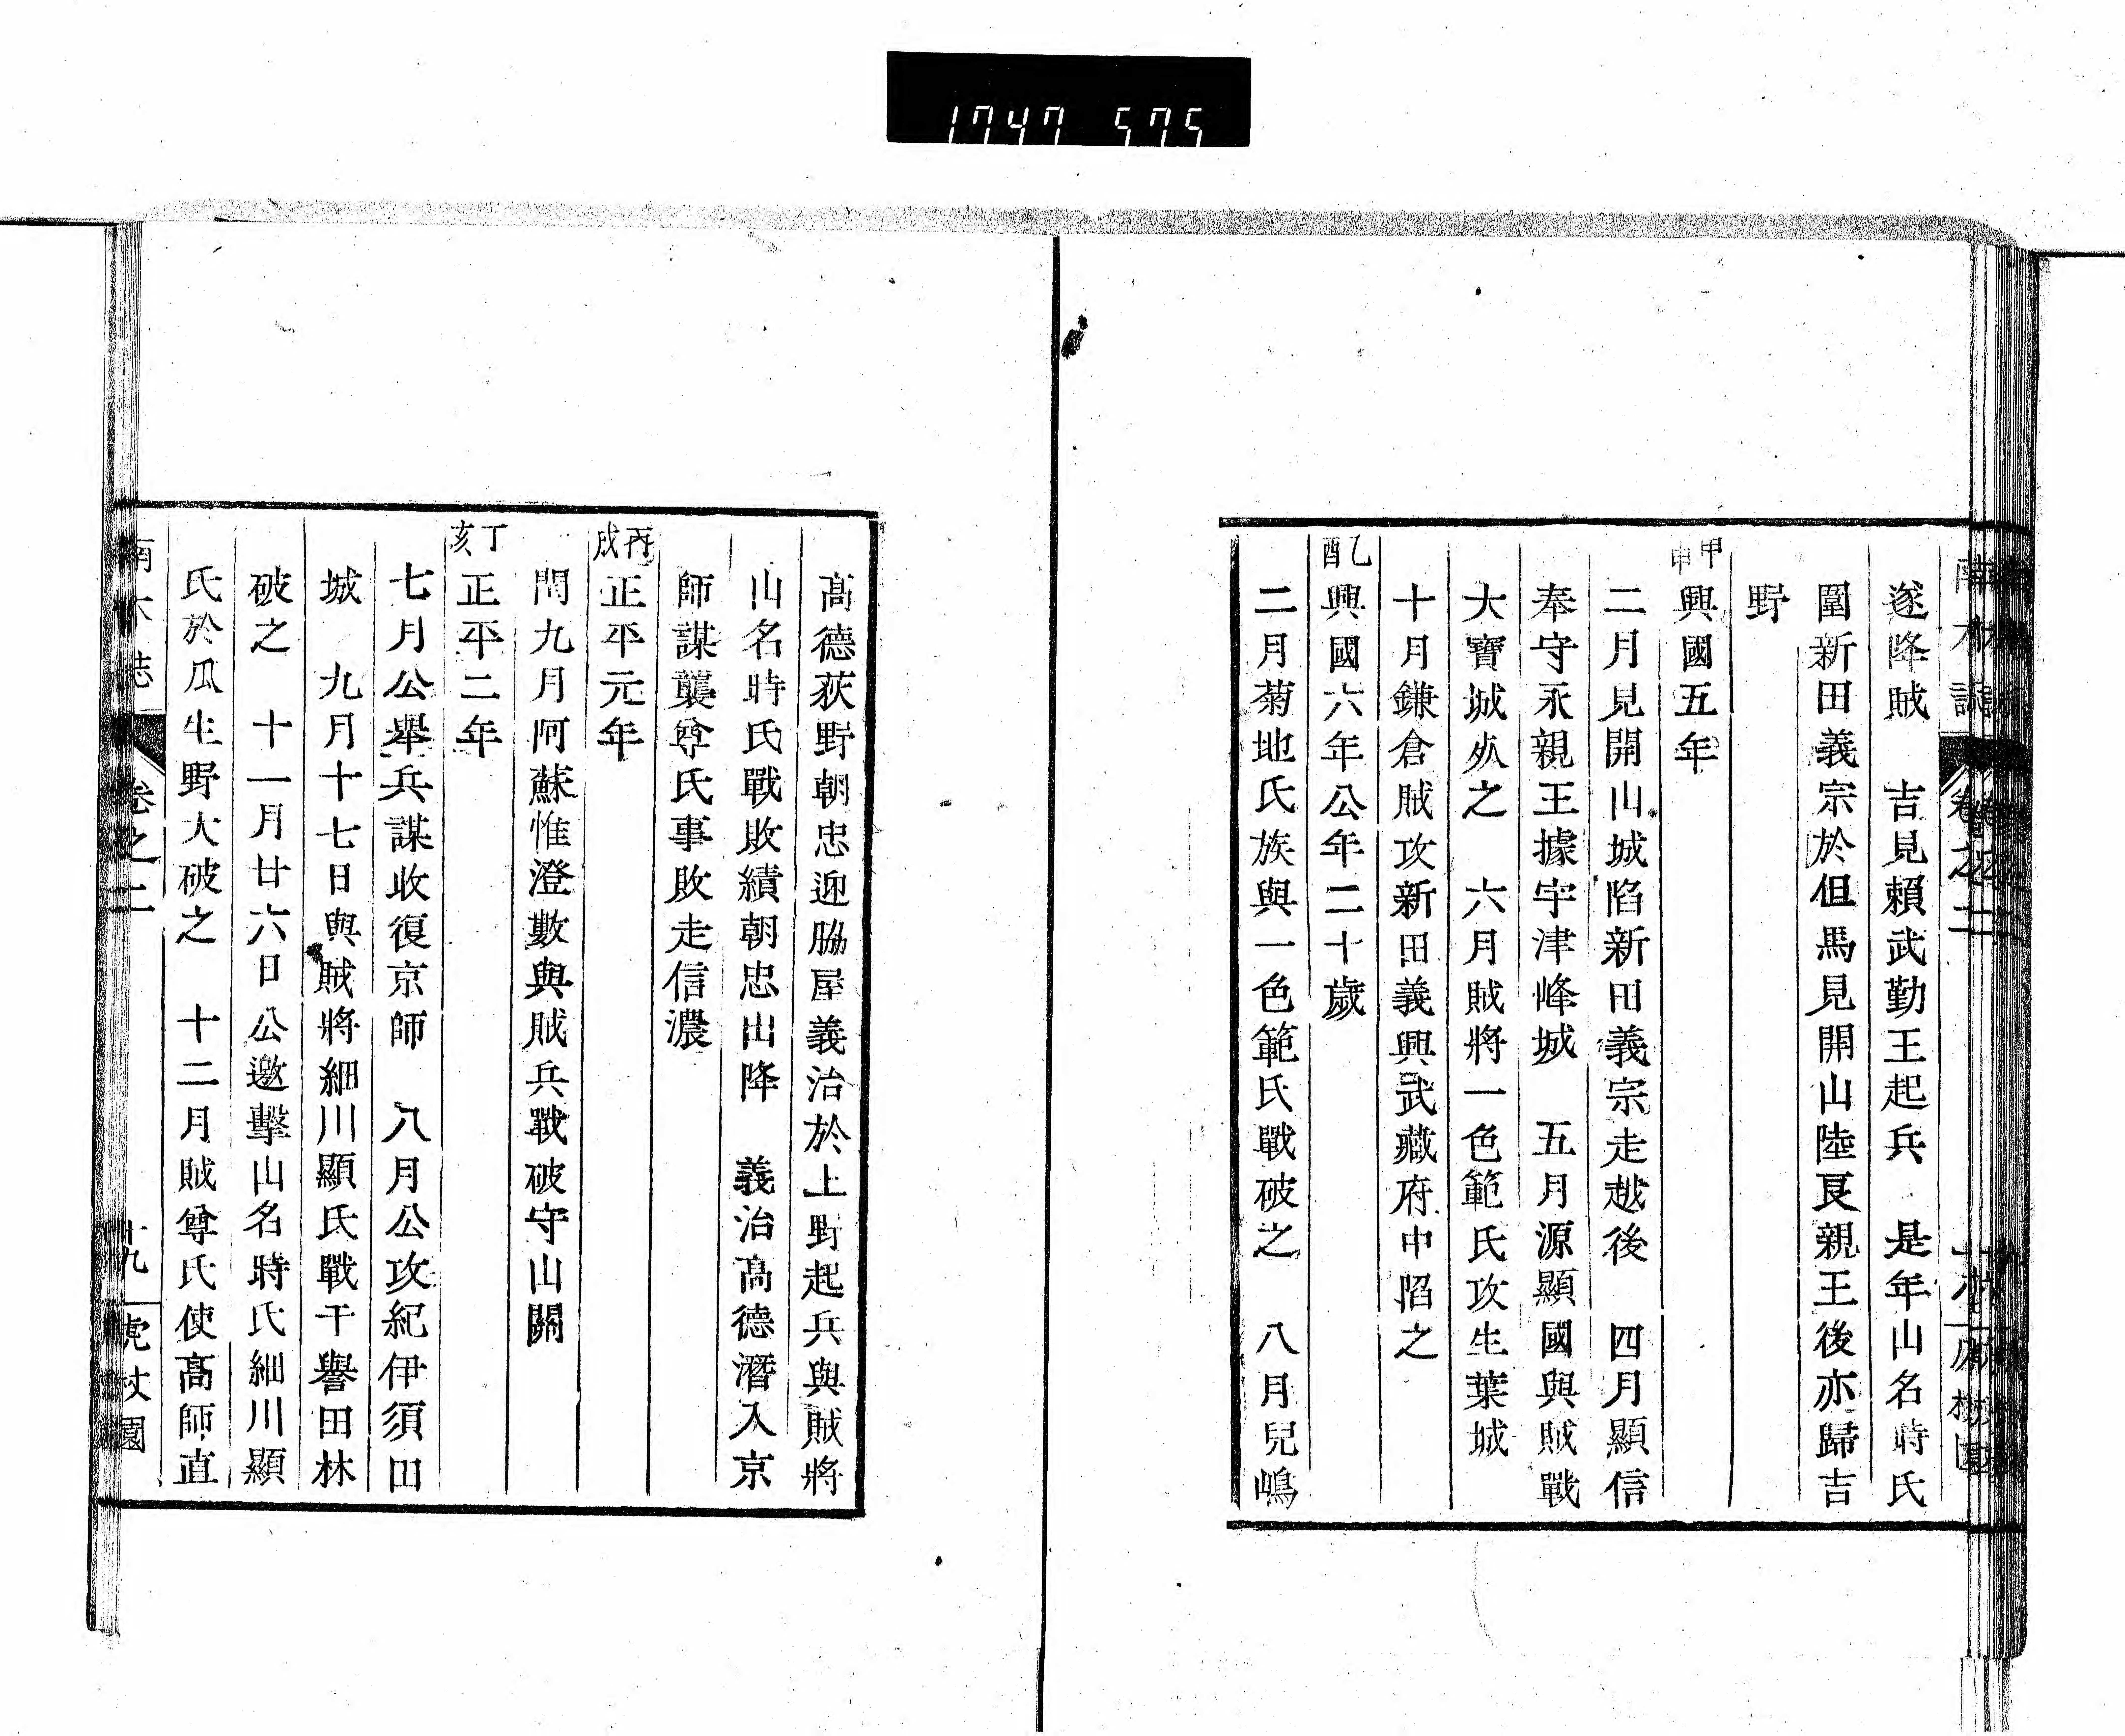 1747 575
遂降賊　吉見賴武勤王起兵　是年山名時氏
圍新田義宗於但馬見開山陸良親王後亦歸吉
野
甲申
興國五年
二月見開山城陷新田義宗走越後　四月顯信
奉守永親王據宇津峰城　五月源顯國與賊戰
大寶城𣦸之　六月賊將一色範氏攻生葉城
十月鎌倉賊攻新田義興武藏府中陷之
乙酉
興國六年公年二十歲
二月菊地氏族與一色範氏戰破之　八月兒嶋
高德荻野朝忠迎脇屋義治於上野起兵與賊將
山名時氏戰敗績朝忠出降　義治高德潛入京
師謀襲尊氏事敗走信濃
丙戌
正平元年
閏九月阿蘇惟澄數與賊兵戰破守山關
丁亥
正平二年
七月公舉兵謀收復京師　八月公攻紀伊須田
城　九月十七日與賊將細川顯氏戰干譽田林
破之　十一月廿六日公邀擊山名時氏細川顯
氏於瓜生野大破之　十二月賊尊氏使高師直
卷之二
十九
虎杖園